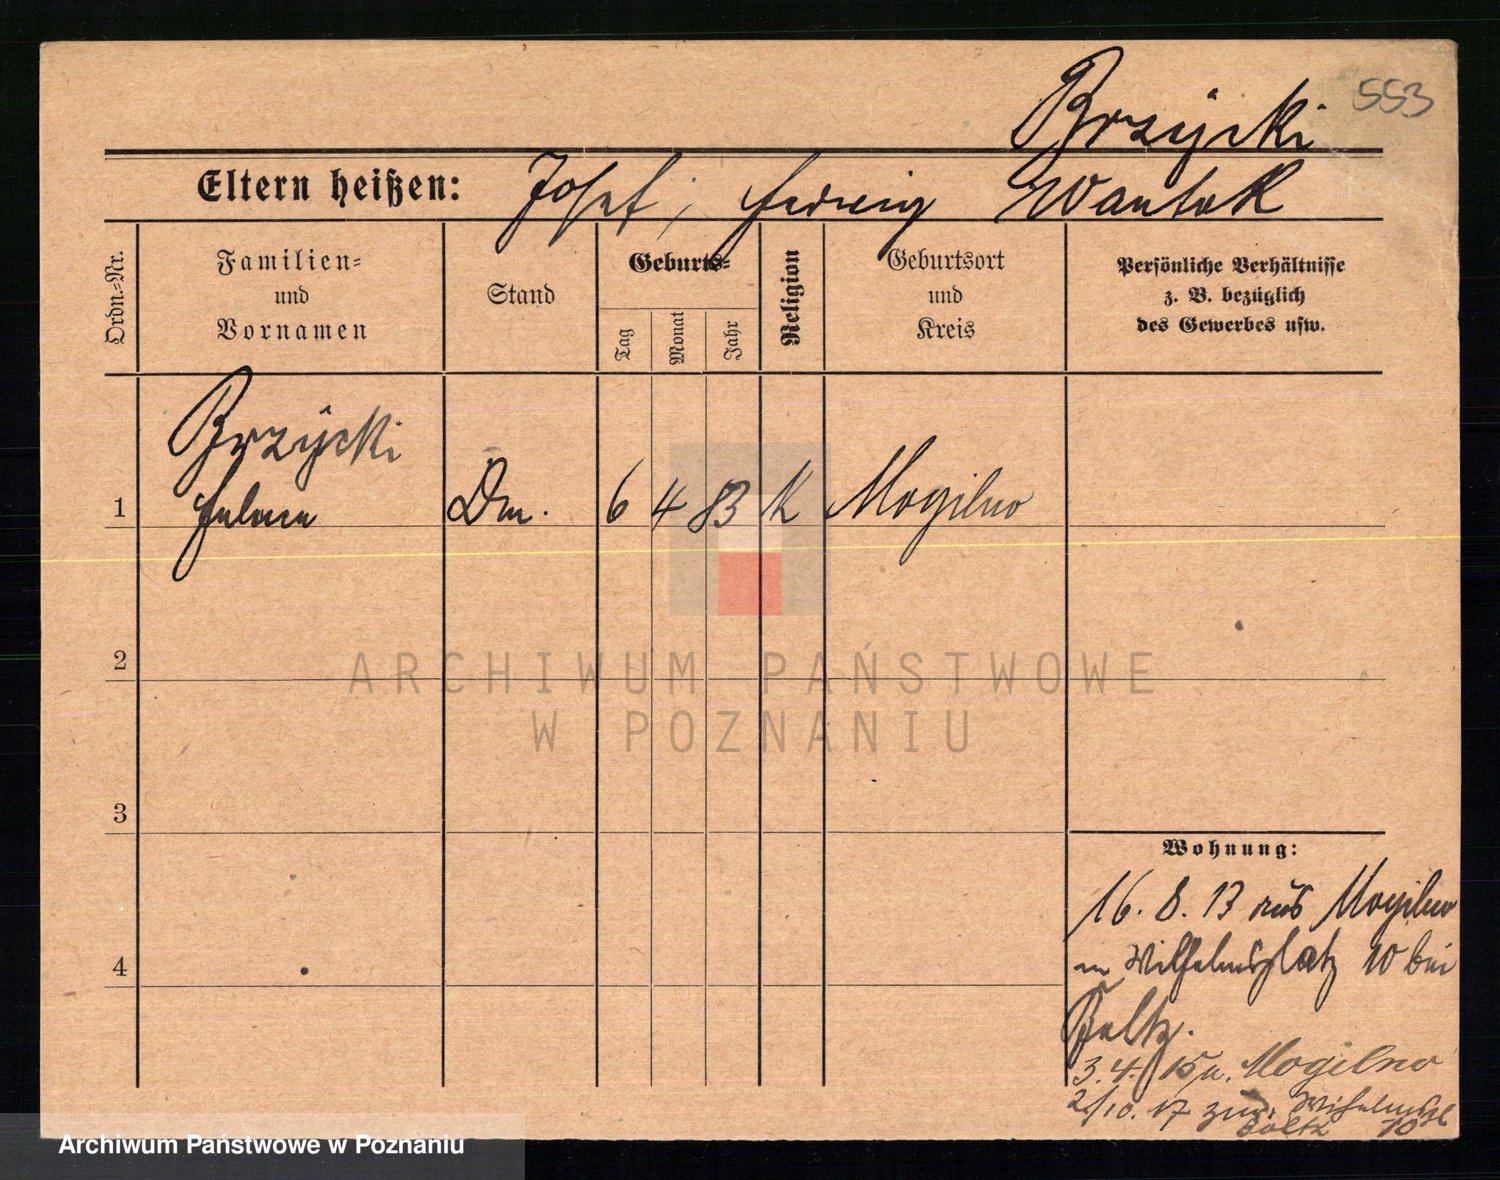 553
Brzycki
Eltern heißen: Josef, Hedwig Wantok
Ordn.-Nr.
Familien-
und
Vornamen
Stand
Geburts-
Tag
Monat
Jahr
Religion
Geburtsort
und
Kreis
Persönliche Verhältnisse
z. B. bezüglich
des Gewerbes usw.
Brzycki
1 Dm. 6 4 83 K Mogilno
2
ARCHIWUM PAŃSTWOWE
W POZNANIU
3
Wohnung:
16. 8. 13 aus Mogilno
4 Wilhelmsplatz 10 bei
3. 4. 15 n. Mogilno
2/10. 17 zur. Wilhelmspl
Boltz 10
Archiwum Państwowe w Poznaniu